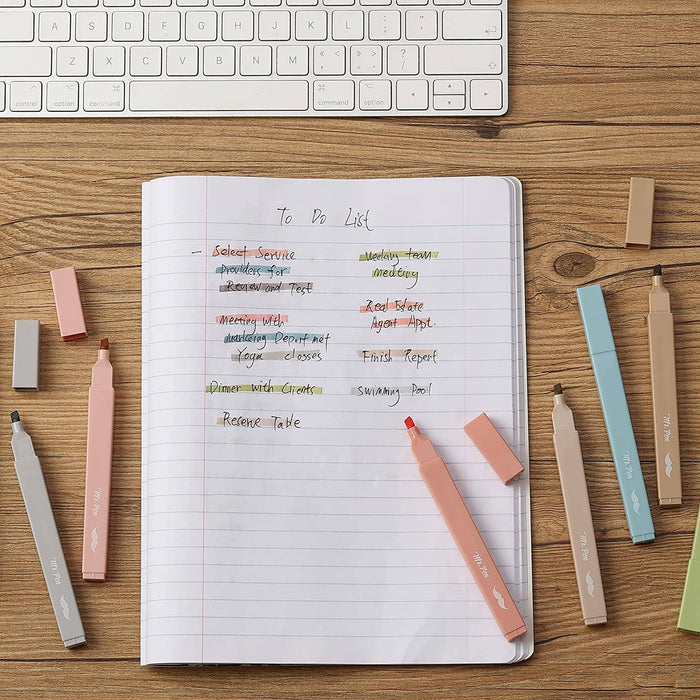 A S D F G H J K L
Z X C V B N M
control option command command option
To Do List
- Select Service
Providers for
Review and Test
Meeting with
Marketing Depart met
Yoga classes
Dinner with Clients
Reserve Table
Weeking team
meeting
Real Estate
Agent Appt.
Finish Report
Swimming Pool
Mr. Pen
Mr. Pen
Mr. Pen
Mr. Pen
Mr. Pen
Mr. Pen